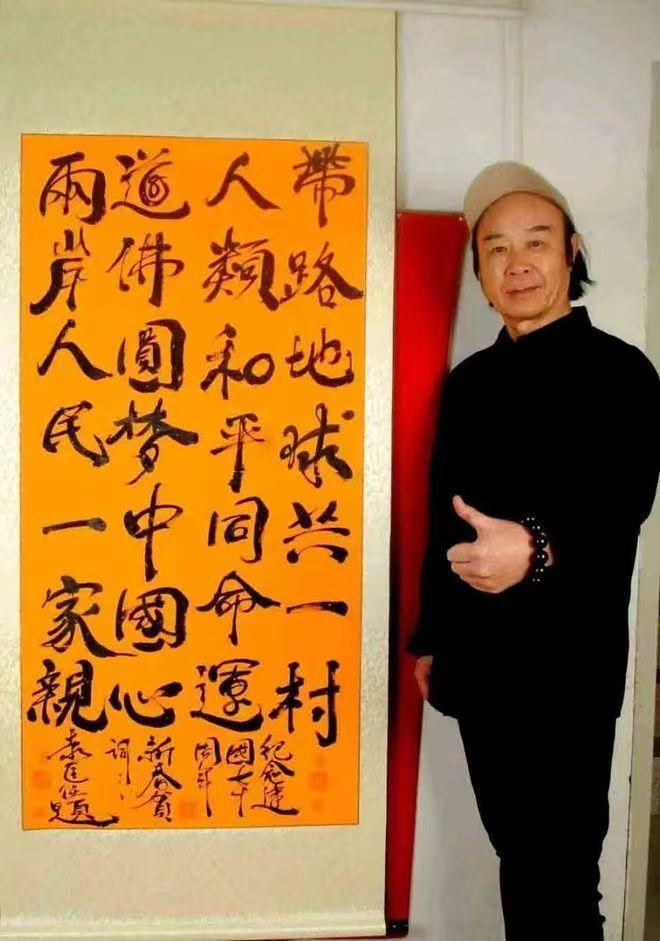 帶路地球共一村
人類和平同命運
道佛圓夢中國心
兩岸人民一家親
紀念建
國七十
周年
新春賀
詞